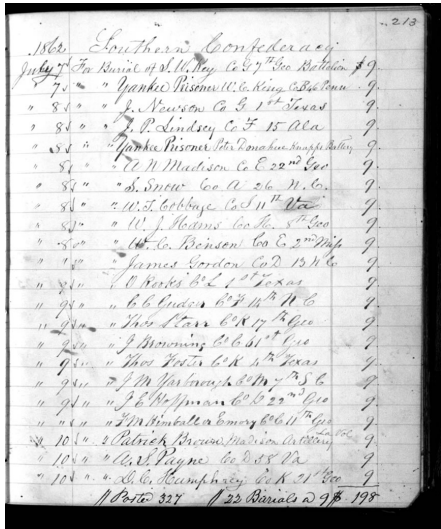 213
1862 Southern Confederacy
July 7 For Burial of S. W. Key Co G 7th Geo Battalion $ 9.
" 7 " " Yankee Prisoner W. C. King Co B Penn 9.
" 8 " " J. Newson Co G 1st Texas 9.
" 8 " " J. P. Lindsey Co F 15 Ala 9.
" 8 " " Yankee Prisoner Peter Donahue Knapps Battery 9.
" 8 " " A N Madison Co E 22nd Geo 9.
" 8 " " S. Snow Co A 26 N. C. 9.
" 8 " " W. T. Cobbage Co I 11th Va 9.
" 8 " " W. J. Hams Co K. 8th Geo 9.
" 8 " " C. Benson Co E 2nd Miss 9.
" " " James Gordon Co D 13 N C 9.
" " " Rooks Co L 1st Texas 9.
" 9 " " C C Co F 14th N C 9.
" 9 " " Thos Starr Co K 17th Geo 9.
" 9 " " J Browning Co C 61st Geo 9.
" 9 " " Thos Foster Co K 4th Texas 9.
" 9 " " J M Yarborough Co M 7th S C 9.
" 9 " " J C Hoffman Co 22nd Geo 9.
" " " " F M Kimball or Emory Co C 11th Geo 9.
" 10 " " Patrick Brown Madison Artillery La Vol 9.
" 10 " " W. S. Payne Co D 58 Va 9.
" 10 " " D. C. Humphrey Co K 21st Geo 9
Posted 327 22 Burials a 9$ 198